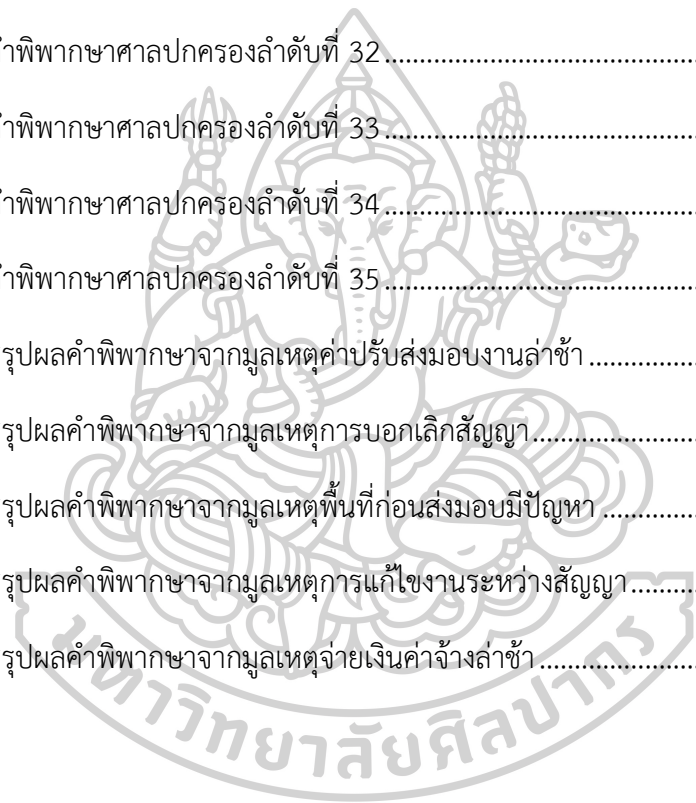 ำพิพากษาศาลปกครองลำดับที่ 32
ำพิพากษาศาลปกครองลำดับที่ 33
ำพิพากษาศาลปกครองลำดับที่ 34
ำพิพากษาศาลปกครองลำดับที่ 35
รุปผลคำพิพากษาจากมูลเหตุค่าปรับส่งมอบงานล่าช้า
รุปผลคำพิพากษาจากมูลเหตุการบอกเลิกสัญญา
รุปผลคำพิพากษาจากมูลเหตุพื้นที่ก่อนส่งมอบมีปัญหา
รุปผลคำพิพากษาจากมูลเหตุการแก้ไขงานระหว่างสัญญา
รุปผลคำพิพากษาจากมูลเหตุจ่ายเงินค่าจ้างล่าช้า
มหาวิทยาลัยศิลปากร